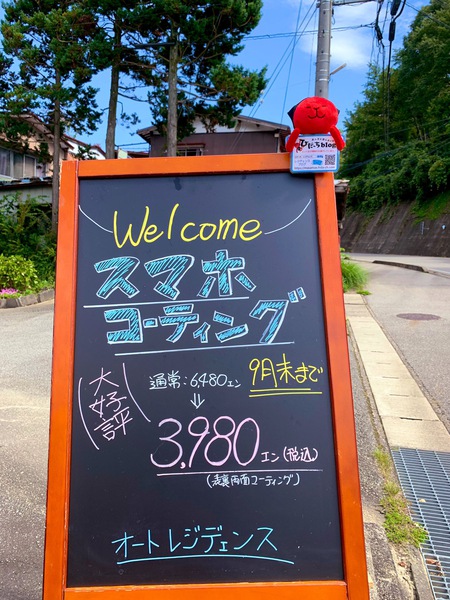 Welcome
スマホ
コーティング
大好評
通常：6,480エン
9月末まで
↓
3,980エン(税込)
(表裏両面コーティング)
オートレジデンス
ひだっちblog